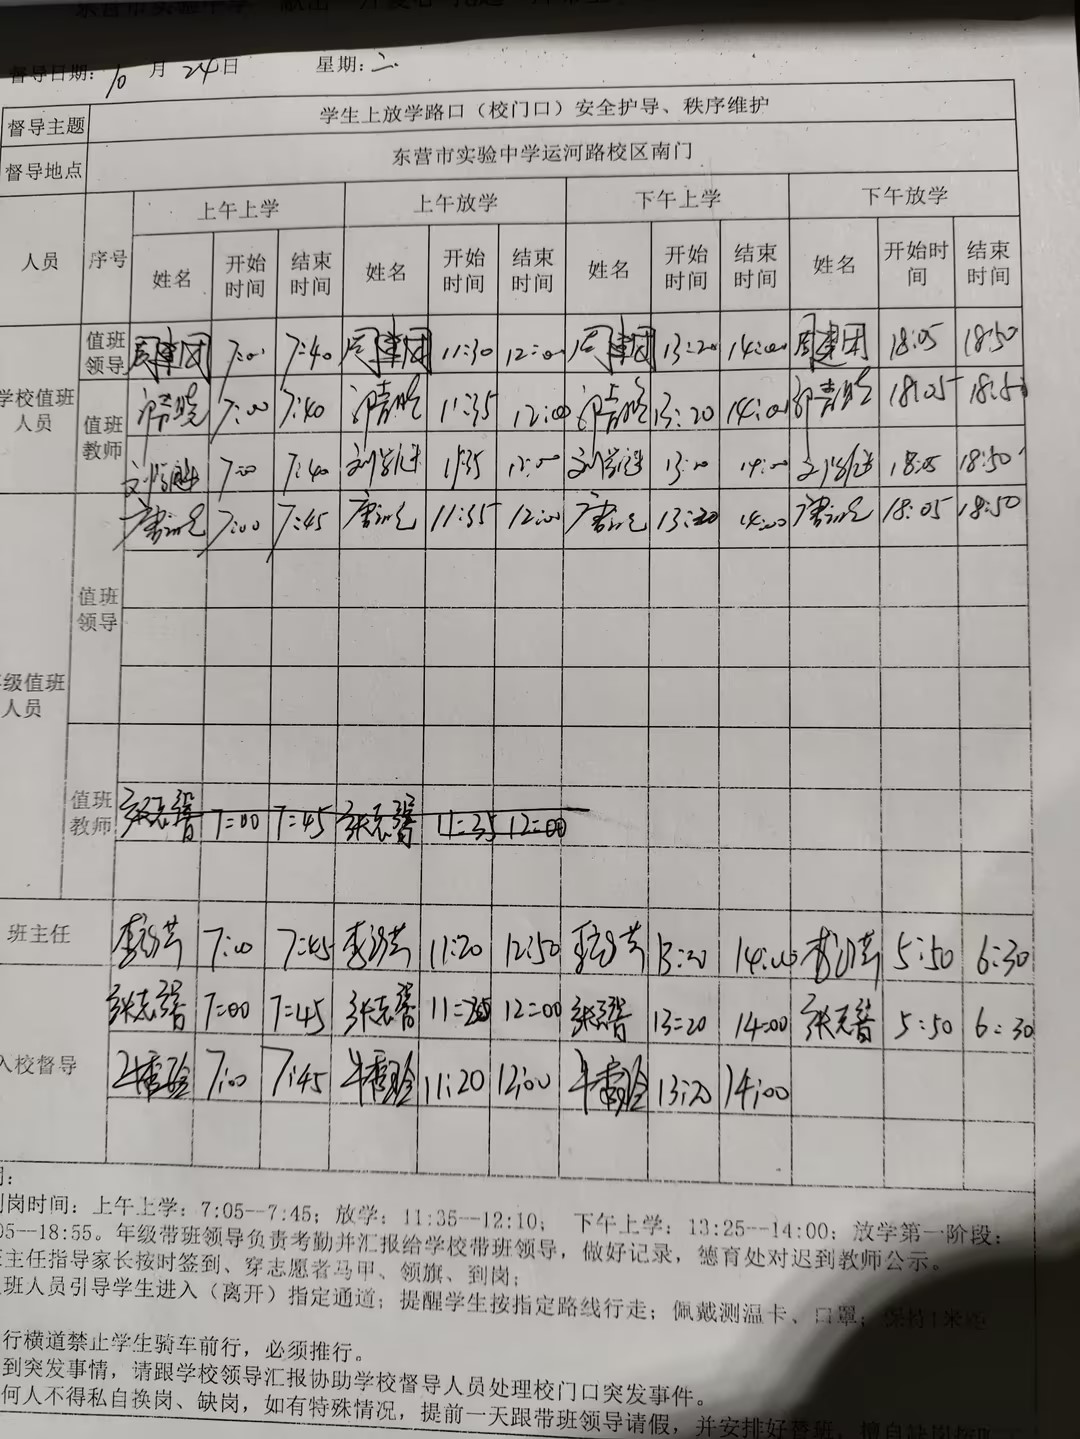 督导日期：10月24日 星期：二
督导主题 学生上放学路口（校门口）安全护导、秩序维护
督导地点 东营市实验中学运河路校区南门
人员 序号 上午上学 上午放学 下午上学 下午放学
姓名 开始时间 结束时间 姓名 开始时间 结束时间 姓名 开始时间 结束时间 姓名 开始时间 结束时间
学校值班人员 值班领导 周建国 7:00 7:40 周建国 11:30 12:00 周建国 13:20 14:00 周建国 18:05 18:50
值班教师 7:00 7:40 11:35 12:00 13:20 14:00 18:05 18:50
7:00 7:40 11:35 12:00 14:00 18:05 18:50
级值班人员 值班领导 7:00 7:45 11:35 12:00 13:20 14:00 18:05 18:50
值班教师 张志馨 7:00 7:45 张志馨 11:35 12:00
班主任 7:00 7:45 11:20 12:50 13:20 14:00 5:50 6:30
入校督导 张志馨 7:00 7:45 张志馨 12:00 张志馨 13:20 14:00 张志馨 5:50 6:30
7:00 7:45 11:20 12:00 13:20 14:00
到岗时间：上午上学：7:05--7:45；放学：11:35--12:10； 下午上学：13:25--14:00；放学第一阶段：
05--18:55。年级带班领导负责考勤并汇报给学校带班领导，做好记录，德育处对迟到教师公示。
班主任指导家长按时签到、穿志愿者马甲、领旗、到岗；
班人员引导学生进入（离开）指定通道；提醒学生按指定路线行走；佩戴测温卡、口罩；保持1米距
行横道禁止学生骑车前行，必须推行。
到突发事情，请跟学校领导汇报协助学校督导人员处理校门口突发事件。
何人不得私自换岗、缺岗，如有特殊情况，提前一天跟带班领导请假，并安排好替班，擅自